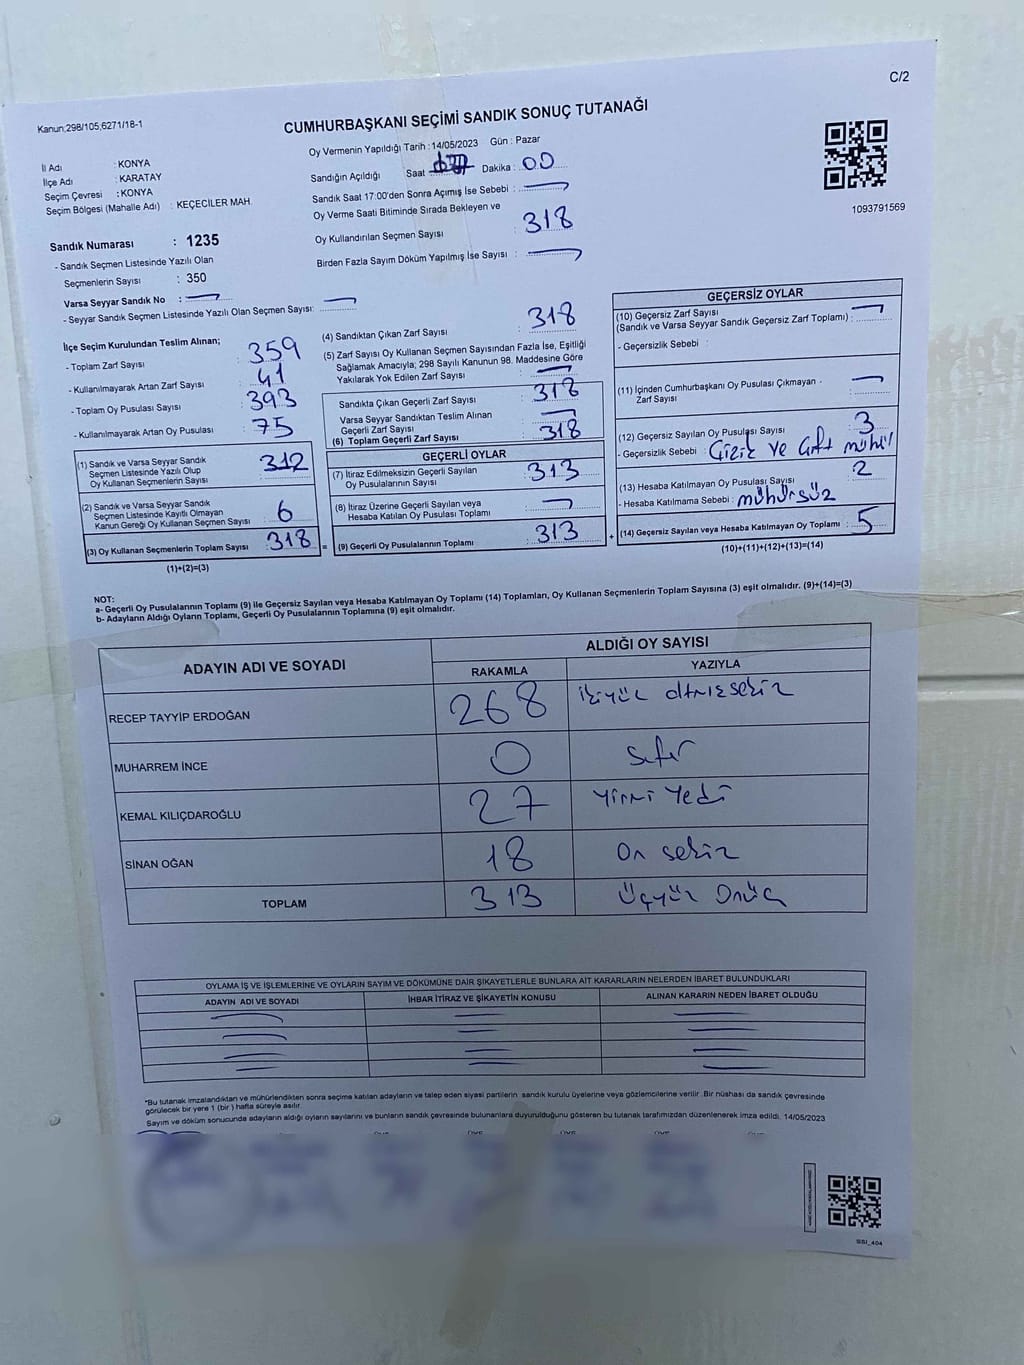 C/2
Kanun;298/105,6271/18-1
CUMHURBAŞKANI SEÇİMİ SANDIK SONUÇ TUTANAĞI
1093791569
İl Adı : KONYA
İlçe Adı : KARATAY
Seçim Çevresi : KONYA
Seçim Bölgesi (Mahalle Adı) : KEÇECİLER MAH.
Sandık Numarası : 1235
- Sandık Seçmen Listesinde Yazılı Olan
Seçmenlerin Sayısı : 350
Varsa Seyyar Sandık No :
- Seyyar Sandık Seçmen Listesinde Yazılı Olan Seçmen Sayısı:
Oy Vermenin Yapıldığı Tarih : 14/05/2023 Gün : Pazar
Sandığın Açıldığı Saat Dakika : 00
Sandık Saat 17:00'den Sonra Açımış İse Sebebi :
Oy Verme Saati Bitiminde Sırada Bekleyen ve
Oy Kullandırılan Seçmen Sayısı : 318
Birden Fazla Sayım Döküm Yapılmış İse Sayısı :
İlçe Seçim Kurulundan Teslim Alınan;
- Toplam Zarf Sayısı : 359
- Kullanılmayarak Artan Zarf Sayısı : 41
- Toplam Oy Pusulası Sayısı : 393
- Kullanılmayarak Artan Oy Pusulası : 75
(1) Sandık ve Varsa Seyyar Sandık
Seçmen Listesinde Yazılı Olup
Oy Kullanan Seçmenlerin Sayısı : 312
(2) Sandık ve Varsa Seyyar Sandık
Seçmen Listesinde Kayıtlı Olmayan
Kanun Gereği Oy Kullanan Seçmen Sayısı : 6
(3) Oy Kullanan Seçmenlerin Toplam Sayısı : 318 =
(1)+(2)=(3)
(4) Sandıktan Çıkan Zarf Sayısı : 318
(5) Zarf Sayısı Oy Kullanan Seçmen Sayısından Fazla İse, Eşitliği
Sağlamak Amacıyla; 298 Sayılı Kanunun 98. Maddesine Göre
Yakılarak Yok Edilen Zarf Sayısı :
Sandıkta Çıkan Geçerli Zarf Sayısı : 318
Varsa Seyyar Sandıktan Teslim Alınan
Geçerli Zarf Sayısı :
(6) Toplam Geçerli Zarf Sayısı : 318
GEÇERLİ OYLAR
(7) İtiraz Edilmeksizin Geçerli Sayılan
Oy Pusulalarının Sayısı : 313
(8) İtiraz Üzerine Geçerli Sayılan veya
Hesaba Katılan Oy Pusulası Toplamı :
(9) Geçerli Oy Pusulalarının Toplamı : 313 +
GEÇERSİZ OYLAR
(10) Geçersiz Zarf Sayısı
(Sandık ve Varsa Seyyar Sandık Geçersiz Zarf Toplamı) :
- Geçersizlik Sebebi :
(11) İçinden Cumhurbaşkanı Oy Pusulası Çıkmayan
Zarf Sayısı :
(12) Geçersiz Sayılan Oy Pusulası Sayısı : 3
- Geçersizlik Sebebi : Çizik ve Çift mühür
(13) Hesaba Katılmayan Oy Pusulası Sayısı : 2
- Hesaba Katılmama Sebebi : mühürsüz
(14) Geçersiz Sayılan veya Hesaba Katılmayan Oy Toplamı : 5
(10)+(11)+(12)+(13)=(14)
NOT:
a- Geçerli Oy Pusulalarının Toplamı (9) ile Geçersiz Sayılan veya Hesaba Katılmayan Oy Toplamı (14) Toplamları, Oy Kullanan Seçmenlerin Toplam Sayısına (3) eşit olmalıdır. (9)+(14)=(3)
b- Adayların Aldığı Oyların Toplamı, Geçerli Oy Pusulalarının Toplamına (9) eşit olmalıdır.
ADAYIN ADI VE SOYADI ALDIĞI OY SAYISI
RAKAMLA YAZIYLA
RECEP TAYYİP ERDOĞAN 268 ikiyüz altmışsekiz
MUHARREM İNCE 0 Sıfır
KEMAL KILIÇDAROĞLU 27 Yirmi Yedi
SİNAN OĞAN 18 On sekiz
TOPLAM 313 Üçyüz Onüç
OYLAMA İŞ VE İŞLEMLERİNE VE OYLARIN SAYIM VE DÖKÜMÜNE DAİR ŞİKAYETLERLE BUNLARA AİT KARARLARIN NELERDEN İBARET BULUNDUKLARI
ADAYIN ADI VE SOYADI İHBAR İTİRAZ VE ŞİKAYETİN KONUSU ALINAN KARARIN NEDEN İBARET OLDUĞU
*Bu tutanak imzalandıktan ve mühürlendikten sonra seçime katılan adayların ve talep eden siyasi partilerin sandık kurulu üyelerine veya gözlemcilerine verilir. Bir nüshası da sandık çevresinde
görülecek bir yere 1 (bir ) hafta süreyle asılır.
Sayım ve döküm sonucunda adayların aldığı oyların sayılarını ve bunların sandık çevresinde bulunanlara duyurulduğunu gösteren bu tutanak tarafımızdan düzenlenerek imza edildi. 14/05/2023
SSI_404